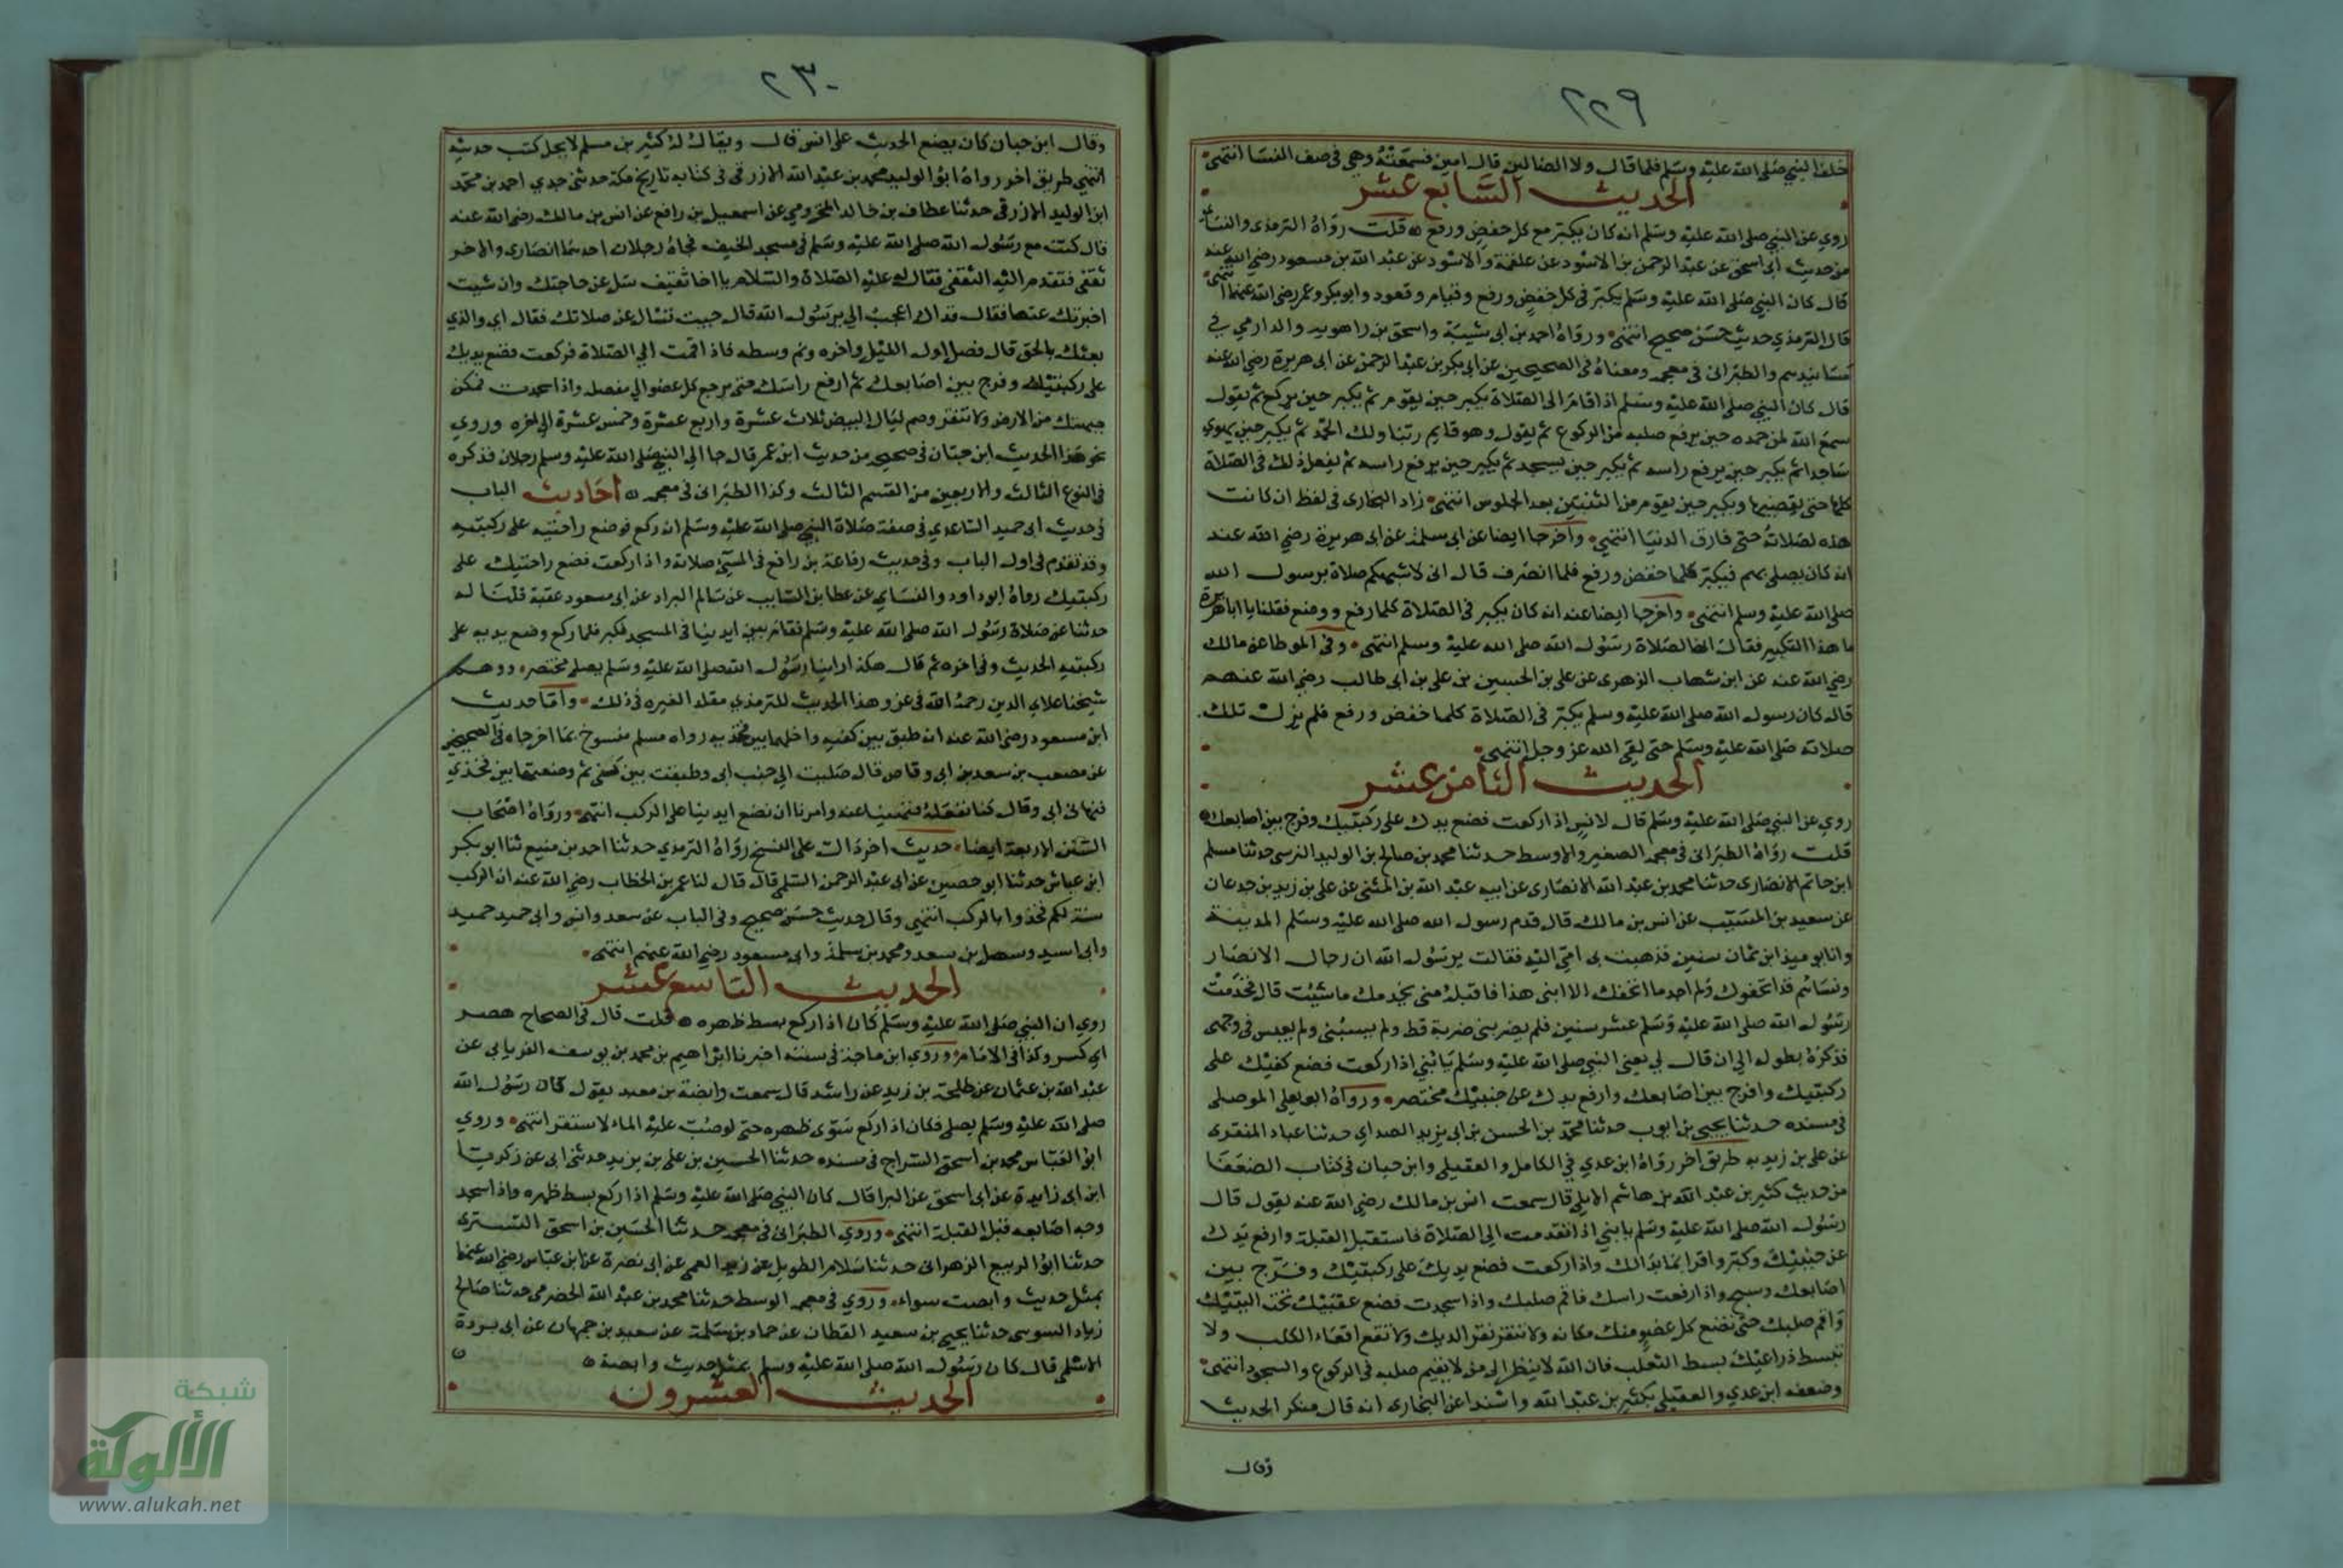 ٢٢٩
خلف النبي صلى الله عليه وسلم فلما قال ولا الضالين قال امين فسمعته وهي في صف النسا انتهى
الحديث السابع عشر
روي عن النبي صلى الله عليه وسلم انه كان يكبر مع كل خفض ورفع قلت رواه الترمذي والنساي
من حديث ابي اسحق عن عبد الرحمن بن الاسود عن علقمة والاسود عن عبد الله بن مسعود رضي الله عنه
قال كان النبي صلى الله عليه وسلم يكبر في كل خفض ورفع وقيام وقعود وابو بكر وعمر رضي الله عنهما انتهى
قال الترمذي حديث حسن صحيح انتهى ورواه احمد بن ابي شيبة واسحق بن راهويه والدارمي في
مسانيدهم والطبراني في معجمه ومعناه في الصحيحين عن ابي بكر بن عبد الرحمن عن ابي هريرة رضي الله عنه
قال كان النبي صلى الله عليه وسلم اذا قام الى الصلاة يكبر حين يقوم ثم يكبر حين يركع ثم يقول
سمع الله لمن حمده حين يرفع صلبه من الركوع ثم يقول وهو قايم ربنا ولك الحمد ثم يكبر حين يهوي
ساجدا ثم يكبر حين يرفع راسه ثم يكبر حين يسجد ثم يكبر حين يرفع راسه ثم يفعل ذلك في الصلاة
كلها حتى يقضيها ويكبر حين يقوم من الثنتين بعد الجلوس انتهى زاد البخاري في لفظ ان كانت
هذه لصلاته حتى فارق الدنيا انتهى واخرجا ايضا عن ابي سلمة عن ابي هريرة رضي الله عنه
انه كان يصلي بهم فيكبر كلما خفض ورفع فلما انصرف قال اني لاشبهكم صلاة برسول الله
صلى الله عليه وسلم انتهى واخرجا ايضا عنه انه كان يكبر في الصلاة كلما رفع ووضع فقلنا يا ابا هريرة
ما هذا التكبير فقال انها لصلاة رسول الله صلى الله عليه وسلم انتهى وفي الموطا عن مالك
رضي الله عنه عن ابن شهاب الزهري عن علي بن الحسين بن علي بن ابي طالب رضي الله عنهم
قال كان رسول الله صلى الله عليه وسلم يكبر في الصلاة كلما خفض ورفع فلم يزل تلك
صلاته صلى الله عليه وسلم حتى لقي الله عز وجل انتهى
الحديث الثامن عشر
روي عن النبي صلى الله عليه وسلم قال لانس اذا ركعت فضع يدك على ركبتيك وفرج بين اصابعك
قلت رواه الطبراني في معجمه الصغير والاوسط حدثنا محمد بن صالح بن الوليد النرسي حدثنا مسلم
ابن حاتم الانصاري حدثنا محمد بن عبد الله الانصاري عن ابيه عبد الله بن المثنى عن علي بن زيد بن جدعان
عن سعيد بن المسيب عن انس بن مالك قال قدم رسول الله صلى الله عليه وسلم المدينة
وانا يوميذ ابن ثمان سنين فذهبت بي امي اليه فقالت يرسول الله ان رجال الانصار
ونساهم قد اتحفوك ولم اجد ما اتحفك الا ابني هذا فاقبله مني يخدمك ما شيت قال فخدمت
رسول الله صلى الله عليه وسلم عشر سنين فلم يضربني ضربة قط ولم يسبني ولم يعبس في وجهي
فذكره بطوله الى ان قال لي يعني النبي صلى الله عليه وسلم يا بني اذا ركعت فضع كفيك على
ركبتيك وافرج بين اصابعك وارفع يدك عن جنبيك مختصر ورواه ابو يعلى الموصلي
في مسنده حدثنا يحيى بن ايوب حدثنا محمد بن الحسن بن ابي يزيد الصداي حدثنا عباد المنقري
عن علي بن زيد به طريق اخر رواه ابن عدي في الكامل والعقيلي وابن حبان في كتاب الضعفا
من حديث كثير بن عبد الله بن هاشم الايلي قال سمعت انس بن مالك رضي الله عنه يقول قال
رسول الله صلى الله عليه وسلم يا بني اذا تقدمت الى الصلاة فاستقبل القبلة وارفع يدك
عن جنبيك وكبر واقرا بما بدالك واذا ركعت فضع يديك على ركبتيك وفرج بين
اصابعك وسبح واذا رفعت راسك فاقم صلبك واذا سجدت فضع عقبيك تحت اليتيك
واقم صلبك حتى تضع كل عضو منك مكانه ولا تنقر نقر الديك ولا تقع اقعاء الكلب ولا
تبسط ذراعيك بسط الثعلب فان الله لا ينظر الى من لا يقيم صلبه في الركوع والسجود انتهى
وضعفه ابن عدي والعقيلي بكثير بن عبد الله واسندا عن البخاري انه قال منكر الحديث
وقال
٢٣٠
وقال ابن حبان كان يضع الحديث على انس قال ويقال له كثير بن مسلم لا يحل كتب حديثه
انتهى طريق اخر رواه ابو الوليد محمد بن عبد الله الازرقي في كتابه تاريخ مكة حدثني جدي احمد بن محمد
ابن الوليد الازرقي حدثنا عطاف بن خالد المخزومي عن اسمعيل بن رافع عن انس بن مالك رضي الله عنه
قال كنت مع رسول الله صلى الله عليه وسلم في مسجد الخيف فجاه رجلان احدهما انصاري والاخر
ثقفي فتقدم اليه الثقفي فقال له عليه الصلاة والسلام يا اخا ثقيف سل عن حاجتك وان شيت
اخبرتك عنها فقال فذاك اعجب الي يرسول الله قال جيت تسال عن صلاتك فقال اي والذي
بعثك بالحق قال فصل اول الليل واخره ونم وسطه فاذا قمت الى الصلاة فركعت فضع يديك
على ركبتيك وفرج بين اصابعك ثم ارفع راسك حتى يرجع كل عضو الى مفصله واذا سجدت فمكن
جبهتك من الارض ولا تنقر وصم ليال البيض ثلاث عشرة واربع عشرة وخمس عشرة الى اخره وروي
نحو هذا الحديث ابن حبان في صحيحه من حديث ابن عمر قال جا الى النبي صلى الله عليه وسلم رجلان فذكره
في النوع الثالث والاربعين من القسم الثالث وكذا الطبراني في معجمه احاديث الباب
في حديث ابي حميد الساعدي في صفة صلاة النبي صلى الله عليه وسلم انه ركع فوضع راحتيه على ركبتيه
وقد تقدم في اول الباب وفي حديث رفاعة بن رافع في المسيء صلاته واذا ركعت فضع راحتيك على
ركبتيك رواه ابو داود والنساي عن عطا بن السايب عن سالم البراد عن ابي مسعود عقبة قلنا له
حدثنا عن صلاة رسول الله صلى الله عليه وسلم فقام بين ايدينا في المسجد فكبر فلما ركع وضع يديه على
ركبتيه الحديث وفي اخره ثم قال هكذا راينا رسول الله صلى الله عليه وسلم يصلي مختصر ووهم
شيخنا علاي الدين رحمه الله في عزو هذا الحديث للترمذي مقلد الغيره في ذلك واما حديث
ابن مسعود رضي الله عنه انه طبق بين كفيه وادخلهما بين فخذيه رواه مسلم منسوخ بما اخرجاه في الصحيحين
عن مصعب بن سعد بن ابي وقاص قال صليت الى جنب ابي وطبقت بين كفي ثم وضعتهما بين فخذي
فنهاني ابي وقال كنا نفعله فنهينا عنه وامرنا ان نضع ايدينا على الركب انتهى ورواه اصحاب
السنن الاربعة ايضا حديث اخر دالت على النسخ رواه الترمذي حدثنا احمد بن منيع ثنا ابو بكر
ابن عياش حدثنا ابو حصين عن ابي عبد الرحمن السلمي قال قال لنا عمر بن الخطاب رضي الله عنه ان الركب
سنة لكم فخذوا بالركب انتهى وقال حديث حسن صحيح وفي الباب عن سعد وانس وابي حميد حميد
وابي اسيد وسهل بن سعد ومحمد بن سلمة وابي مسعود رضي الله عنهم انتهى
الحديث التاسع عشر
روي ان النبي صلى الله عليه وسلم كان اذا ركع بسط ظهره قلت قال في الصحاح هصر
اي كسر وكذا في الامام وروي ابن ماجة في سننه اخبرنا ابراهيم بن محمد بن يوسف الفريابي عن
عبد الله بن عثمان عن طلحة بن زيد عن راشد قال سمعت وابصة بن معبد يقول كان رسول الله
صلى الله عليه وسلم يصلي فكان اذا ركع سوى ظهره حتى لو صب عليه الماء لاستقر انتهى وروي
ابو العباس محمد بن اسحق السراج في مسنده حدثنا الحسين بن علي بن يزيد حدثني ابي عن زكريا
ابن ابي زايدة عن ابي اسحق عن البرا قال كان النبي صلى الله عليه وسلم اذا ركع بسط ظهره واذا سجد
وجه اصابعه قبل القبلة انتهى وروي الطبراني في معجمه حدثنا الحسين بن اسحق التستري
حدثنا ابو الربيع الزهراني حدثنا سلام الطويل عن زيد العمي عن ابي نضرة عن ابن عباس رضي الله عنهما
بمثل حديث وابصت سواء وروي في معجمه الوسط حدثنا محمد بن عبد الله الحضرمي حدثنا صالح
زياد السوسي حدثنا يحيى بن سعيد القطان عن حماد بن سلمة عن سعيد بن جمهان عن ابي بردة
الاسلمي قال كان رسول الله صلى الله عليه وسلم بمثل حديث وابصة
الحديث العشرون
شبكة
الألوكة
www.alukah.net